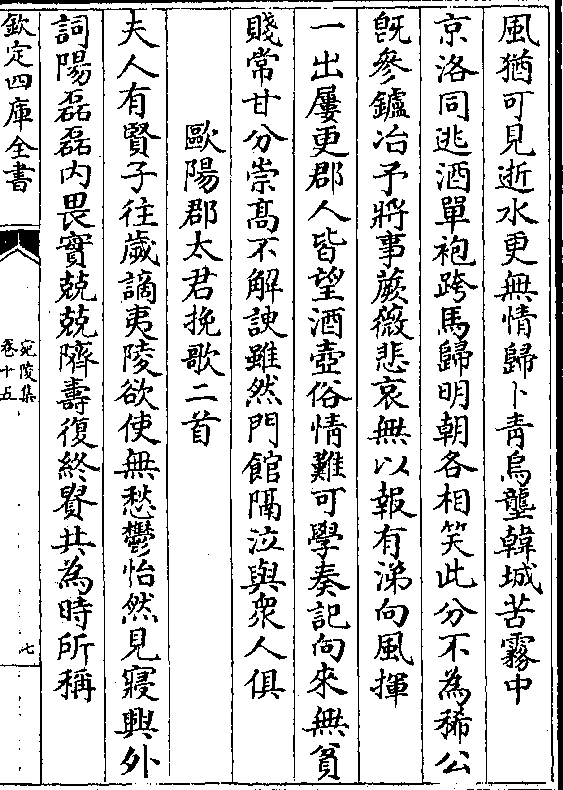 風猶可見逝水更無情歸卜青烏壟韓城苦霧中
京洛同逃酒單袍跨馬歸明朝各相笑此分不為稀公
旣參鑪冶予將事蕨薇悲哀無以報有涕向風揮
一出屢更郡人皆望酒壺俗情難可學奏記向來無貧
賤常甘分崇髙不解諛雖然門館隔泣與衆人俱
歐陽郡太君挽歌二首
夫人有賢子往歲謫夷陵欲使無愁鬱怡然見寢興外
詞陽磊磊内畏實兢兢隮壽復終賢共為時所稱
欽定四庫全書
宛陵集
卷十五
七